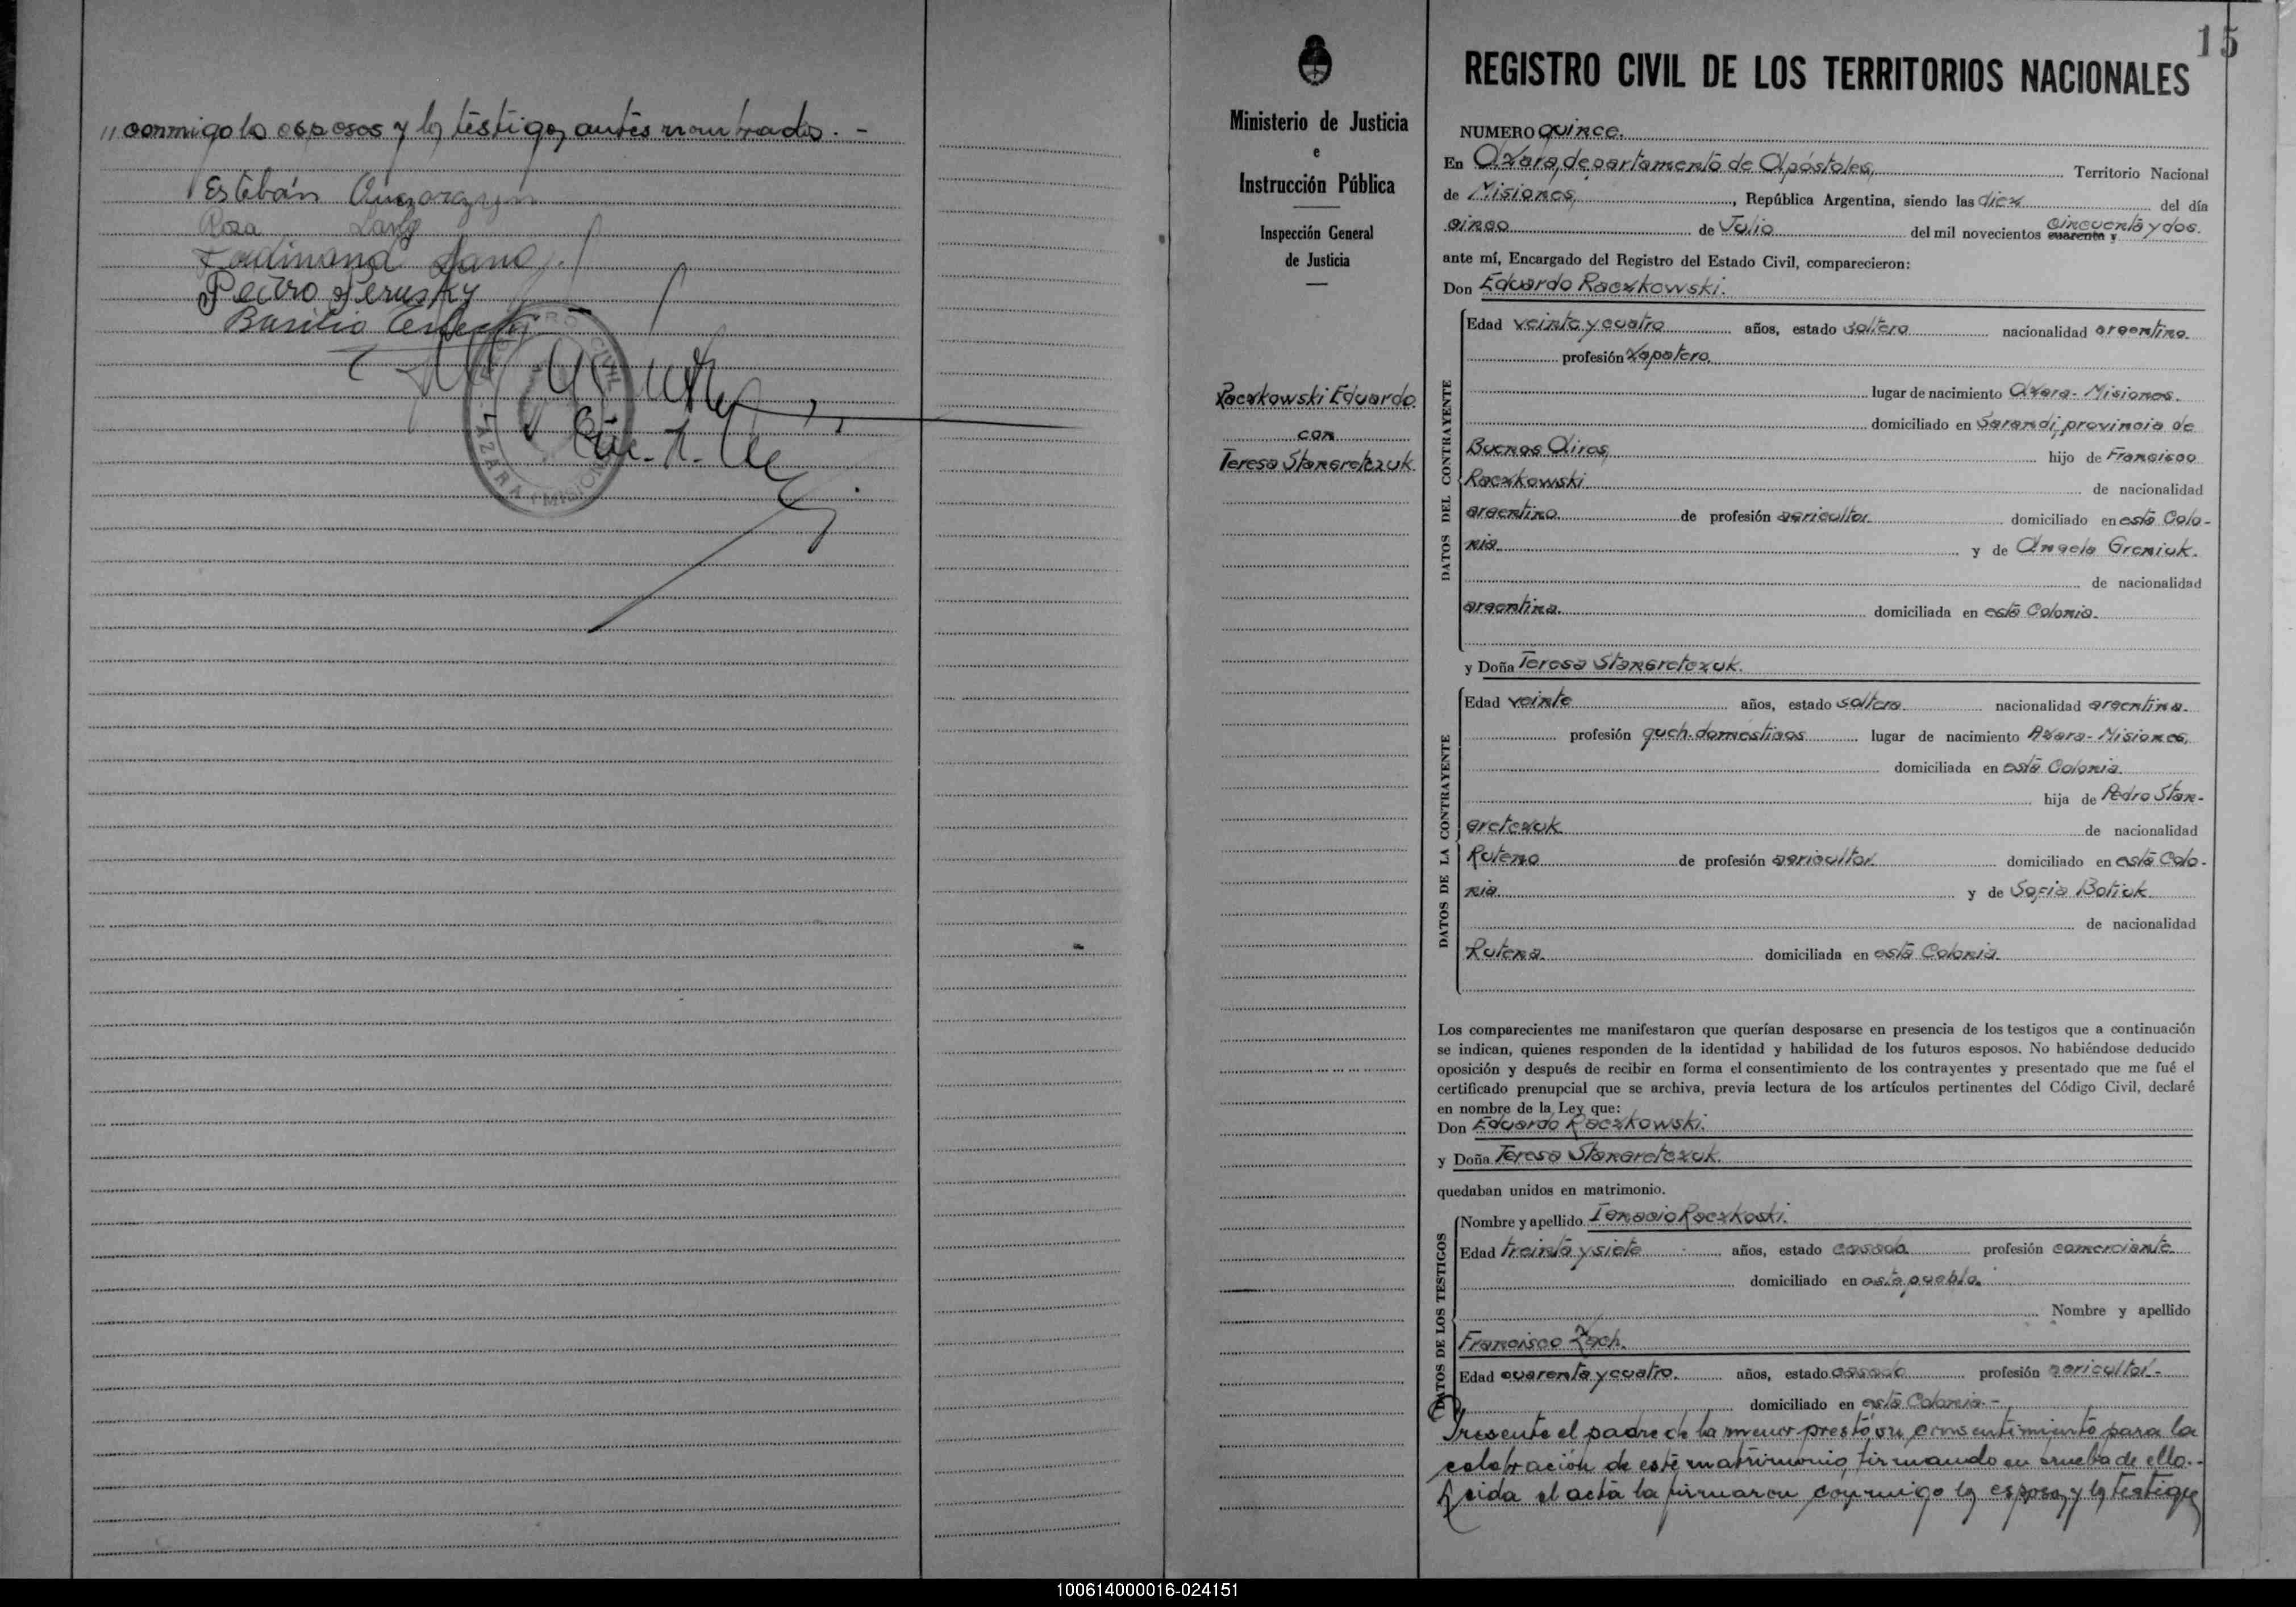 // conmigo los esposos y los testigos antes nombrados. -
Esteban
Rosa
Ferdinand
Pedro Jerusky
Basilio
AZARA (MISIONES)
15
Ministerio de Justicia
e
Instrucción Pública
Inspección General
de Justicia
Raczkowski Eduardo
con
Teresa Stangretczuk.
REGISTRO CIVIL DE LOS TERRITORIOS NACIONALES
NUMERO quince.
En Azara, departamento de Apóstoles, Territorio Nacional
de Misiones, , República Argentina, siendo las diez del día
cinco de Julio del mil novecientos cuarenta y cincuenta y dos.
ante mí, Encargado del Registro del Estado Civil, comparecieron:
Don Eduardo Raczkowski.
DATOS DEL CONTRAYENTE
Edad veinte y cuatro años, estado soltero nacionalidad argentino.
profesión zapatero.
lugar de nacimiento Azara - Misiones.
domiciliado en Sarandi, provincia de
Buenos Aires, hijo de Francisco
Raczkowski de nacionalidad
argentino de profesión agricultor domiciliado en esta Colo-
nia y de Angela Greniuk.
de nacionalidad
argentina. domiciliada en esta Colonia.
y Doña Teresa Stangretczuk.
DATOS DE LA CONTRAYENTE
Edad veinte años, estado soltera nacionalidad argentina.
profesión queh. domesticos lugar de nacimiento Azara - Misiones,
domiciliada en esta Colonia.
hija de Pedro Stan-
gretczuk de nacionalidad
Ruteno de profesión agricultor domiciliado en esta Colo-
nia y de Sofia Botiuk
de nacionalidad
Rutena. domiciliada en esta Colonia.
Los comparecientes me manifestaron que querían desposarse en presencia de los testigos que a continuación
se indican, quienes responden de la identidad y habilidad de los futuros esposos. No habiéndose deducido
oposición y después de recibir en forma el consentimiento de los contrayentes y presentado que me fué el
certificado prenupcial que se archiva, previa lectura de los artículos pertinentes del Código Civil, declaré
en nombre de la Ley que:
Don Eduardo Raczkowski.
y Doña Teresa Stangretczuk.
quedaban unidos en matrimonio.
DATOS DE LOS TESTIGOS
Nombre y apellido Ignacio Raczkoski.
Edad treinta y siete años, estado casado profesión comerciante
domiciliado en este pueblo.
Nombre y apellido
Francisco Zach.
Edad cuarenta y cuatro. años, estado casado profesión agricultor -
domiciliado en esta Colonia. -
Presente el padre de la menor prestó su consentimiento para la
celebración de este matrimonio, firmando en prueba de ello. -
Leida el acta la firmaron conmigo los esposos y los testigos
100614000016-024151